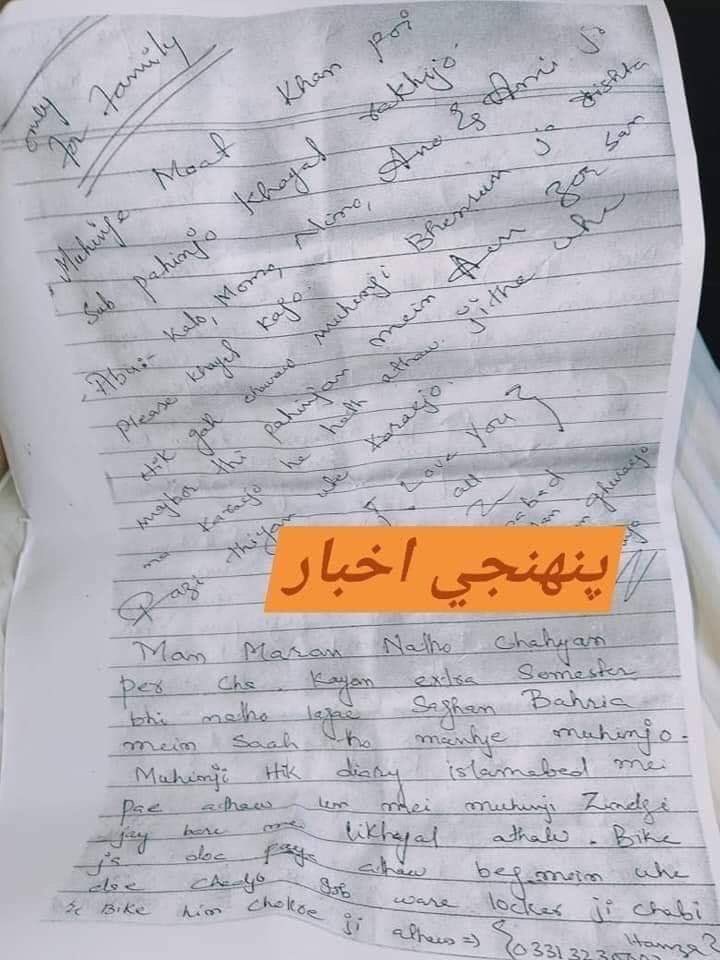 only
for Family
Muhinje Maat Khan poi
Sab pahinjo Khayal rakhijo.
Abu:- Kalo, Momo, Nimo, Ano & Ami ji
Please khayal kajo.
Hik gal chawaw muhinji Bhenrun ja rishta
majbor thi pahinjan mein Aan zor san
na Karaejo he hath athaw. jithe uhe
Razi thiyan uhe Karaejo.
Love you
all
پنهنجي اخبار
Man Maran Natho Chahyan
per Cha. Kayan extra Semester
bhi natho lagae Saghan Bahria
mein Saah tho manhje muhinjo.
Muhinji Hik diary islamabad mei
pae athaw un mei muhinji Zindgi
jay bare me likhayal athaw. Bike
ja doc paya athaw beg mein uhe
doe chadjo Job ware locker ji chabi
& Bike him chokoe ji athaw => { Hamza